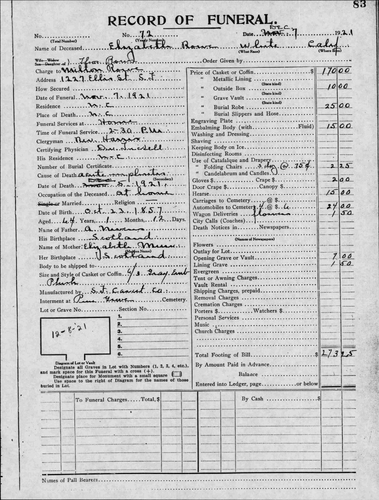 83
RECORD OF FUNERAL.
No. 72 Date, Dec. 7 1921
Name of Deceased Elizabeth Rowe White Calif
Charge to Milton Rowe Order Given by
Address 1227 Ellis St. S.F
How Secured
Date of Funeral Nov. 7, 1921
Residence M.C
Place of Death M.C.
Funeral Services at Home
Time of Funeral Service 2-30 P.M
Clergyman Rev. Harris
Certifying Physician
His Residence M.C
Number of Burial Certificate
Cause of Death acute nephritis
Date of Death 5, 1921.
Occupation of the Deceased at home
Single or Married Religion
Date of Birth Oct. 22, 1857
Aged 64 Years 1 Months 12 Days
Name of Father A.
His Birthplace Scotland
Name of Mother Elizabeth
Her Birthplace Scotland
Body to be shipped to
Size and Style of Casket or Coffin 6/3 Gray
Plush
Manufactured by S.F. Casket Co.
Interment at Pine Grove Cemetery.
Lot or Grave No. Section No.
1.
2.
3.
4.
5.
6.
12-8-21
Diagram of Lot or Vault
Designate all Graves in Lot with Numbers (1, 2, 3, 4, etc.),
and mark space for this Funeral with a cross (+).
Designate place for Monument with a small square
the space to the right of Diagram for the names of those
buried in Lot.
Price of Casket or Coffin $ 170 00
" Metallic Lining
(State kind)
" Outside Box 10 00
(State kind)
" Grave Vault
(State kind)
" Burial Robe 25 00
(State kind)
" Burial Slippers and Hose
Engraving Plate
Embalming Body (with Fluid) 15 00
Washing and Dressing
Shaving
Keeping Body on Ice
Disinfecting Rooms
Use of Catafalque and Drapery
" Folding Chairs 3 doz @ .75¢ 2 25
" Candelabrum and Candles
Gloves $ Crape $ 2 00
Door Crape $ Canopy $
Hearse 15 00
Carriages to Cemetery @ $
Automobiles to Cemetery 4 @ $ 6 24 00
Wagon Deliveries flowers 1 50
City Calls (Coaches)
Death Notices in Newspapers
(Names of Newspapers)
Flowers
Outlay for Lot
Opening Grave or Vault 7 00
Lining Grave 1 50
Evergreen
Tent or Awning Charges
Vault Rental
Shipping Charges, prepaid
Removal Charges
Cremation Charges
Porters $ Watchers $
Personal Services
Music
Church Charges
Total Footing of Bill $ 273 25
By Amount Paid in Advance
Balance
Entered into Ledger, page or below.
To Funeral Charges, Total $ By Cash $
Names of Pall Bearers